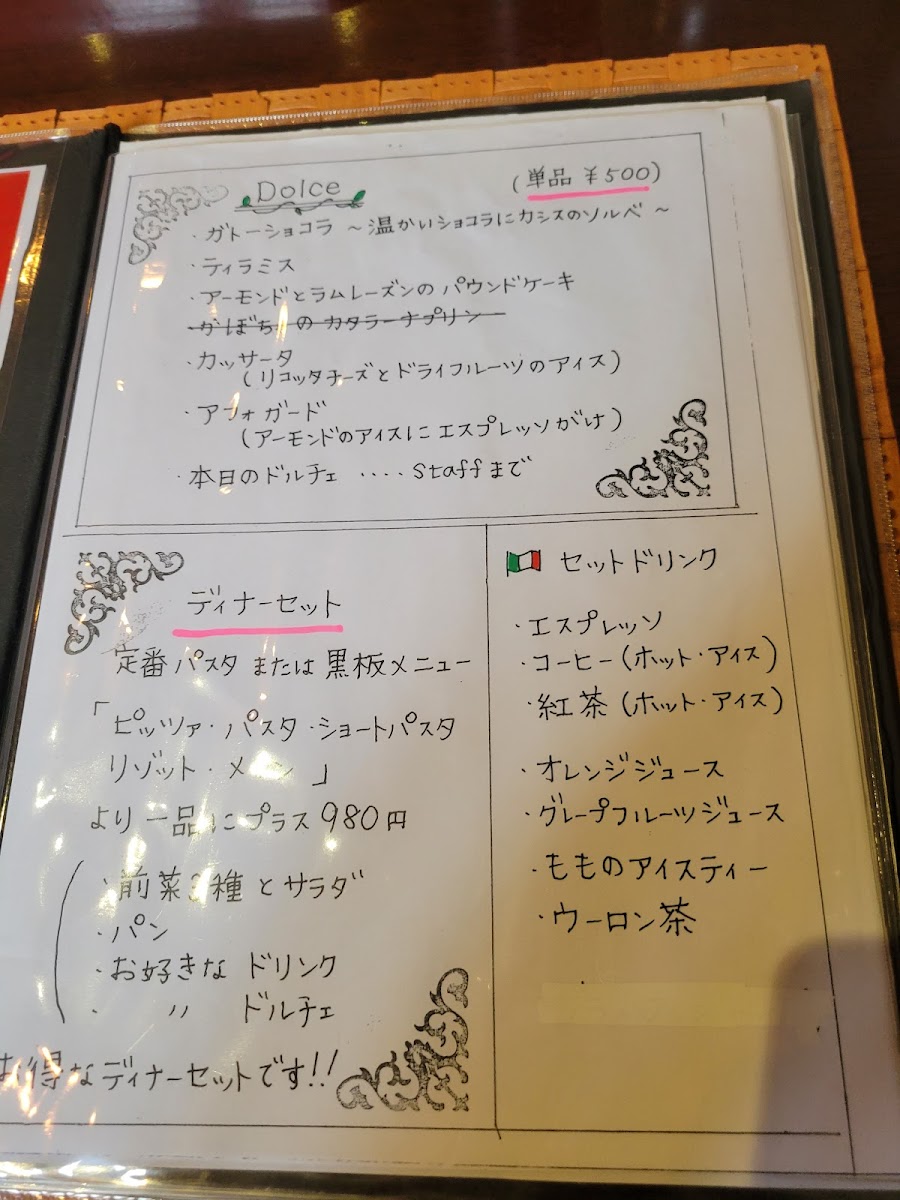 Dolce
(単品 ¥500)
・ガトーショコラ ～温かいショコラにカシスのソルベ～
・ティラミス
・アーモンドとラムレーズンの パウンドケーキ
・かぼちゃの カタラーナプリン
・カッサータ
(リコッタチーズとドライフルーツのアイス)
・アフォガード
(アーモンドのアイスに エスプレッソがけ)
・本日のドルチェ ････ staffまで
ディナーセット
定番パスタ または 黒板メニュー
「ピッツァ・パスタ・ショートパスタ
リゾット・メイン」
より一品にプラス980円
・前菜3種とサラダ
・パン
・お好きな ドリンク
・ 〃 ドルチェ
お得なディナーセットです!!
セットドリンク
・エスプレッソ
・コーヒー(ホット・アイス)
・紅茶(ホット・アイス)
・オレンジジュース
・グレープフルーツジュース
・もものアイスティー
・ウーロン茶